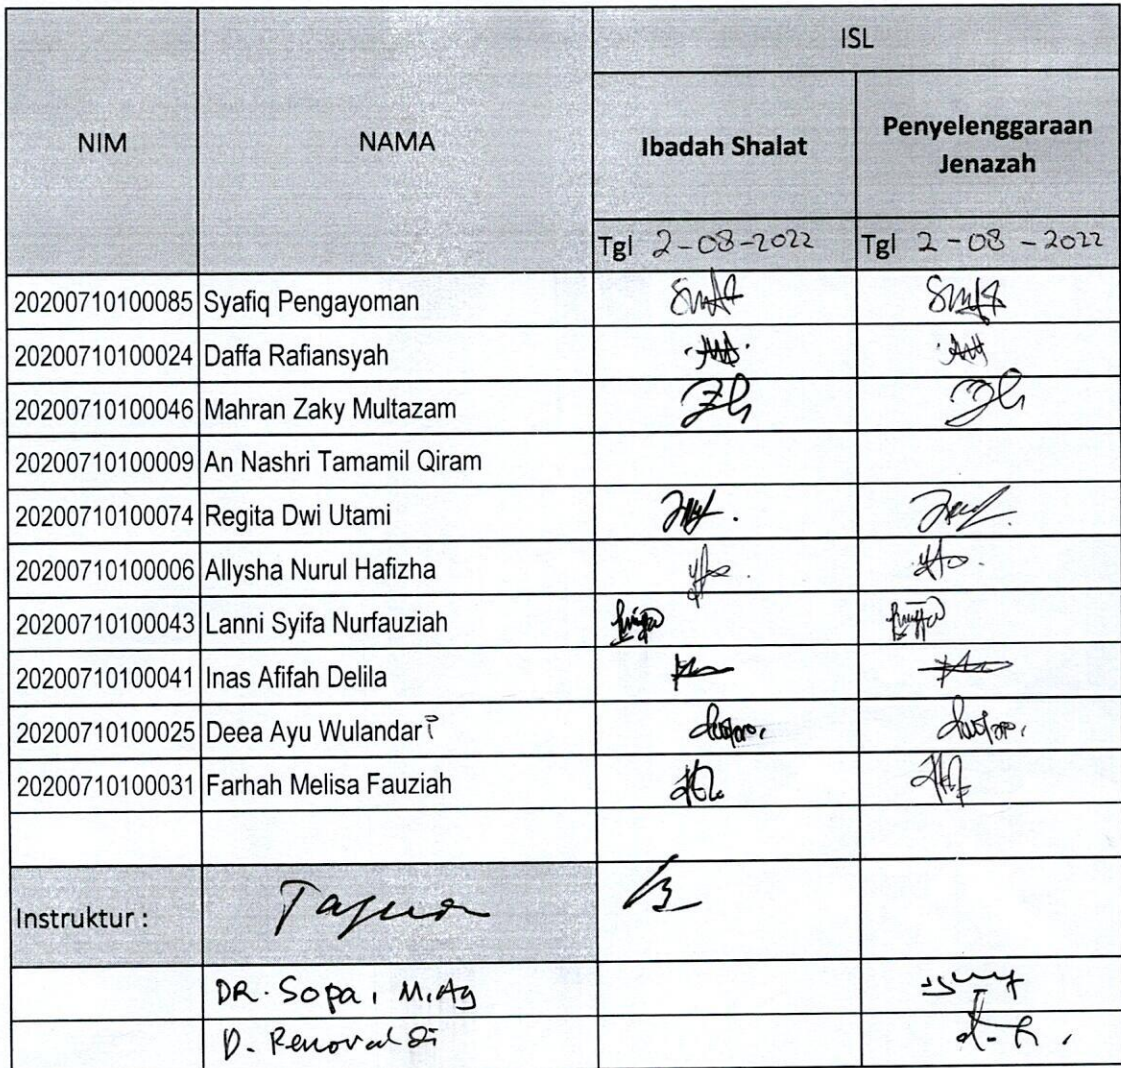 NIM NAMA ISL
Ibadah Shalat Penyelenggaraan
Jenazah
Tgl 2-08-2022 Tgl 2-08-2022
20200710100085 Syafiq Pengayoman
20200710100024 Daffa Rafiansyah
20200710100046 Mahran Zaky Multazam
20200710100009 An Nashri Tamamil Qiram
20200710100074 Regita Dwi Utami
20200710100006 Allysha Nurul Hafizha
20200710100043 Lanni Syifa Nurfauziah
20200710100041 Inas Afifah Delila
20200710100025 Deea Ayu Wulandari
20200710100031 Farhah Melisa Fauziah
Instruktur :
DR. Sopa, M.Ag